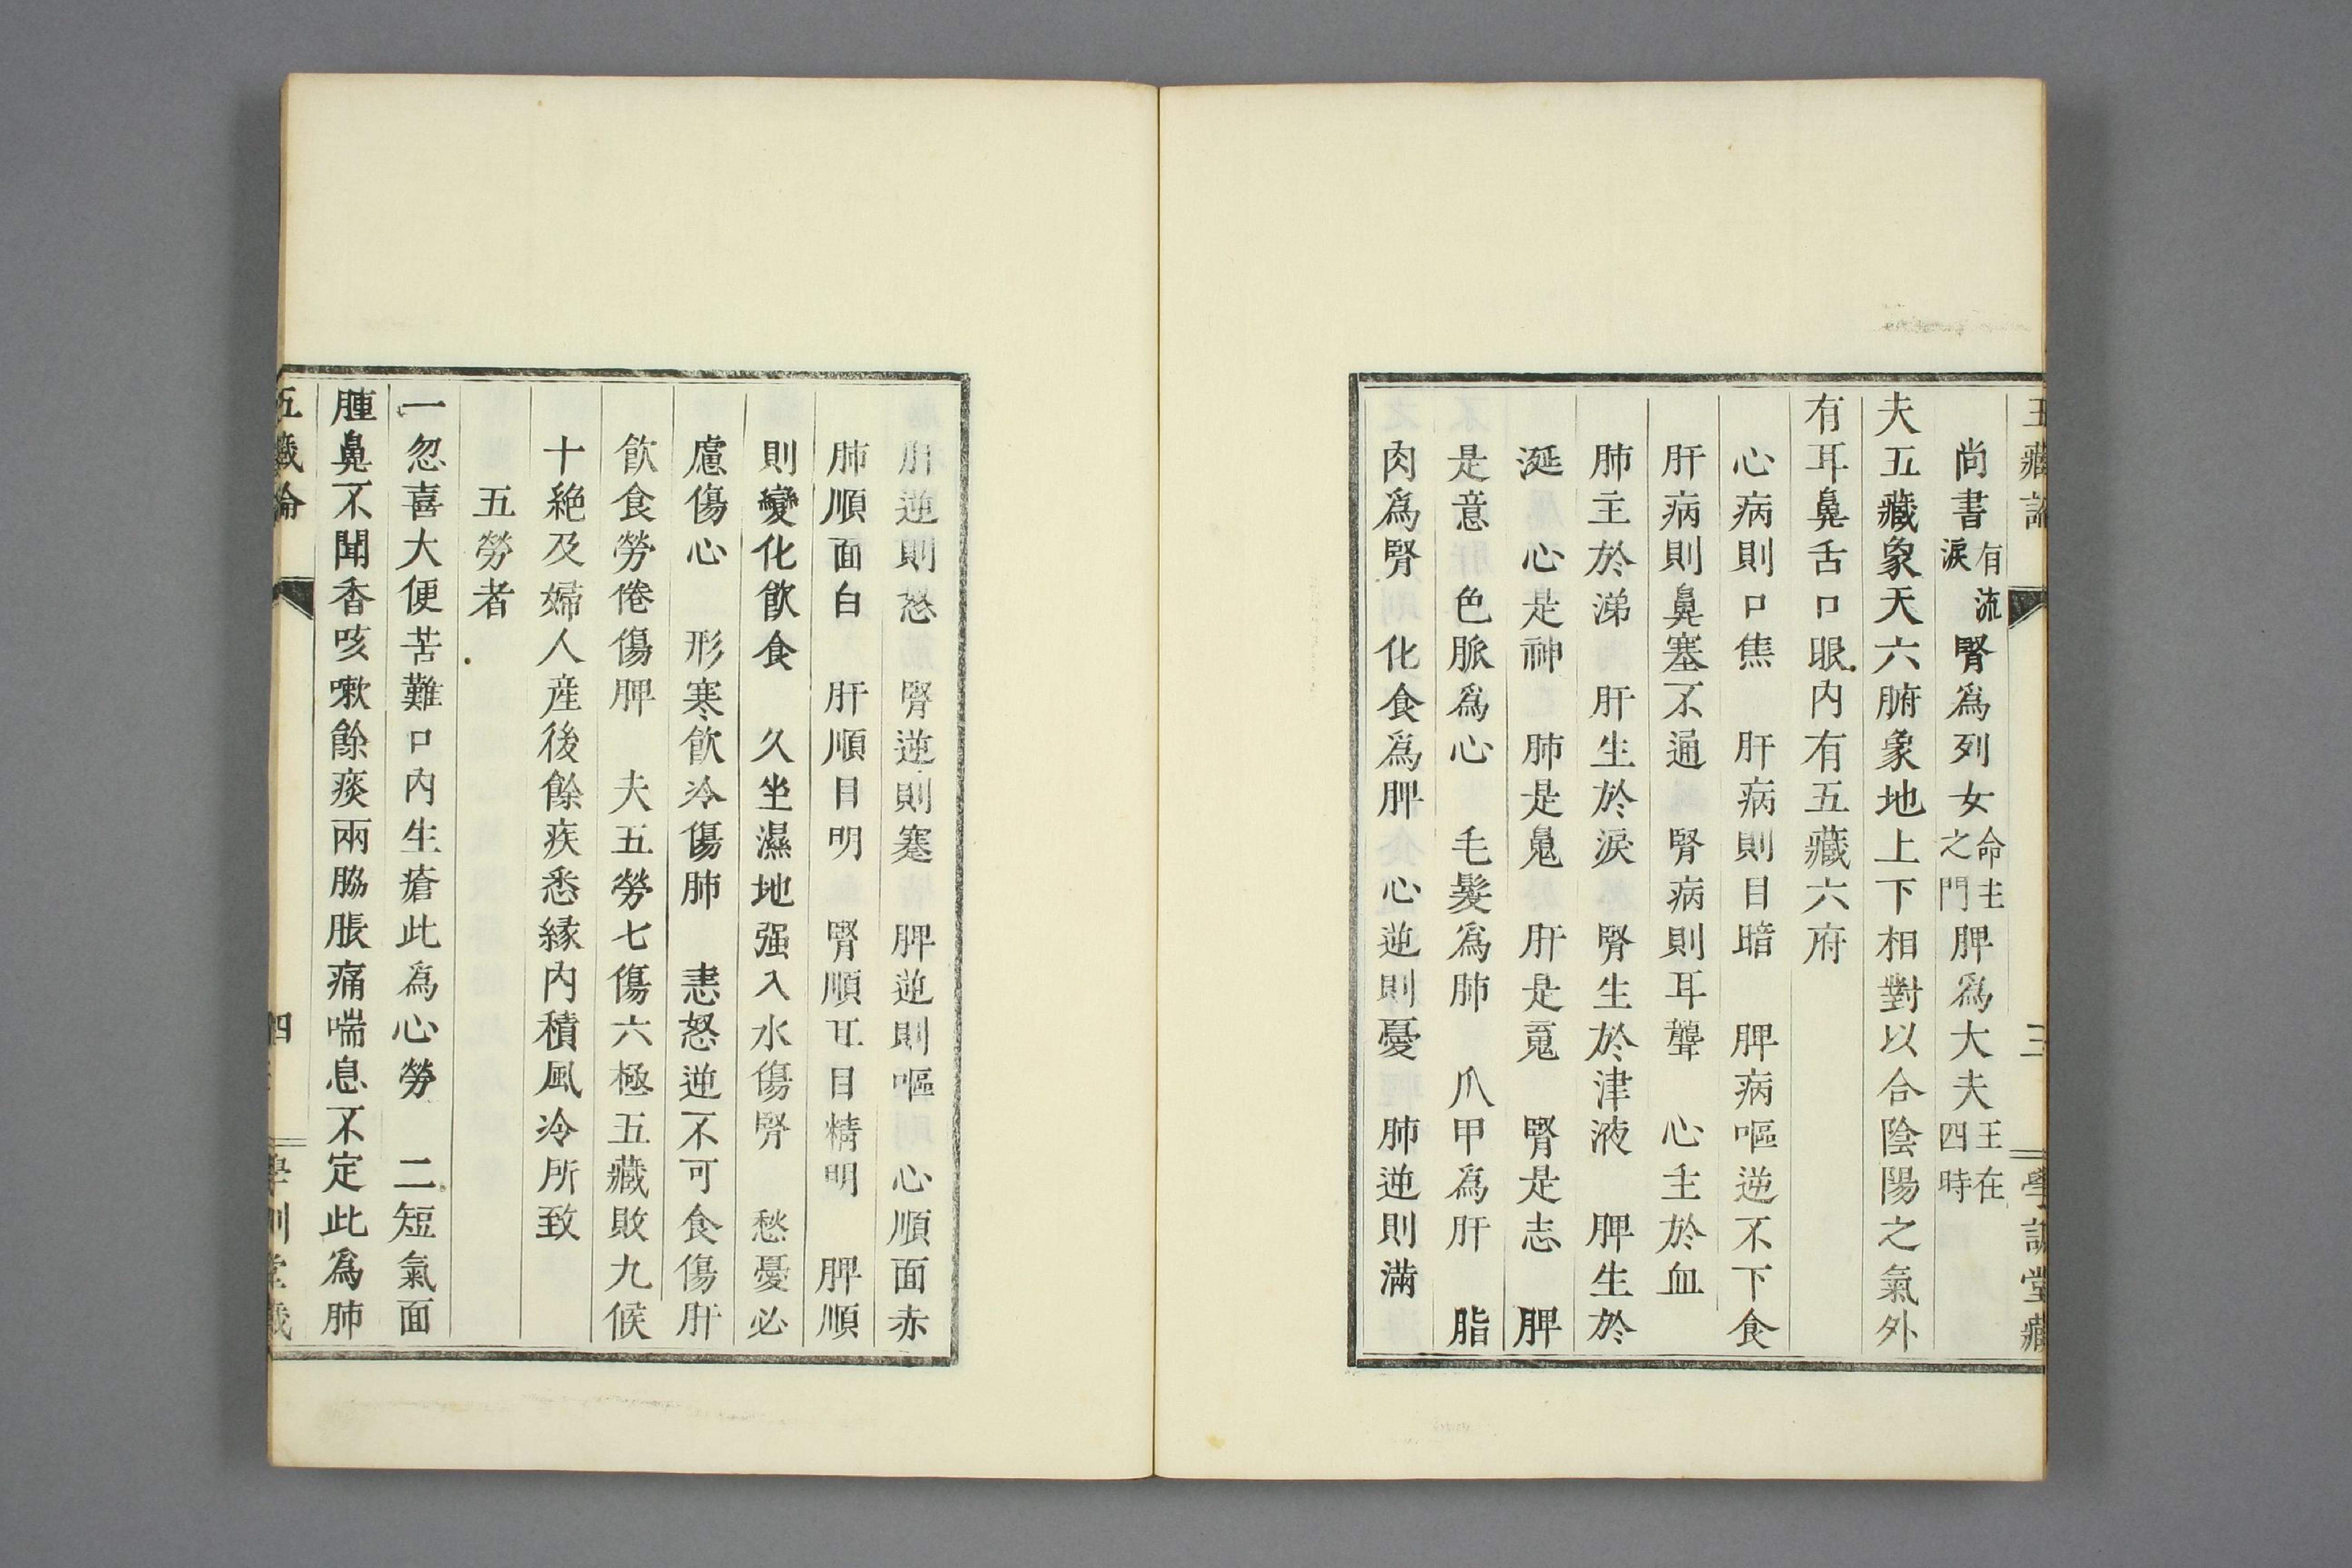 五藏論 三 學訓堂藏
尚書有流淚腎爲列女命主之門脾爲大夫王在四時
夫五藏象天六腑象地上下相對以合陰陽之氣外
有耳鼻舌口眼內有五藏六府
心病則口焦 肝病則目暗 脾病嘔逆不下食
肝病則鼻塞不通 腎病則耳聾 心主於血
肺主於涕 肝生於淚 腎生於津液 脾生於
涎 心是神 肺是䰟 肝是䰟 腎是志 脾
是意 色脈爲心 毛髮爲肺 爪甲爲肝 脂
肉爲腎 化食爲脾 心逆則憂 肺逆則滿
肝逆則怒 腎逆則蹇 脾逆則嘔 心順面赤
肺順面白 肝順目明 腎順耳目精明 脾順
則變化飲食 久坐濕地强入水傷腎 愁憂必
慮傷心 形寒飲冷傷肺 恚怒逆不可食傷肝
飲食勞倦傷脾 夫五勞七傷六極五藏敗九候
十絶及婦人産後餘疾悉緣內積風冷所致
五勞者
一忽喜大便苦難口內生瘡此爲心勞 二短氣面
腫鼻不聞香咳嗽餘痰兩脇脹痛喘息不定此爲肺
五藏論 四 學訓堂藏